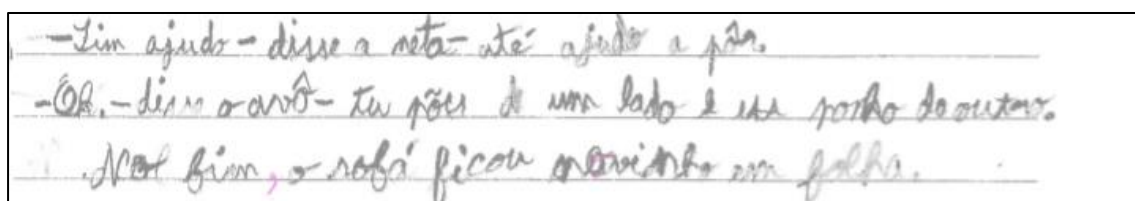 -Sim ajudo - disse a neta - até ajudo a pôr.
-Ok. - disse o avô - tu pões de um lado e eu ponho do outro.
No fim, o sofá ficou novinho em folha.